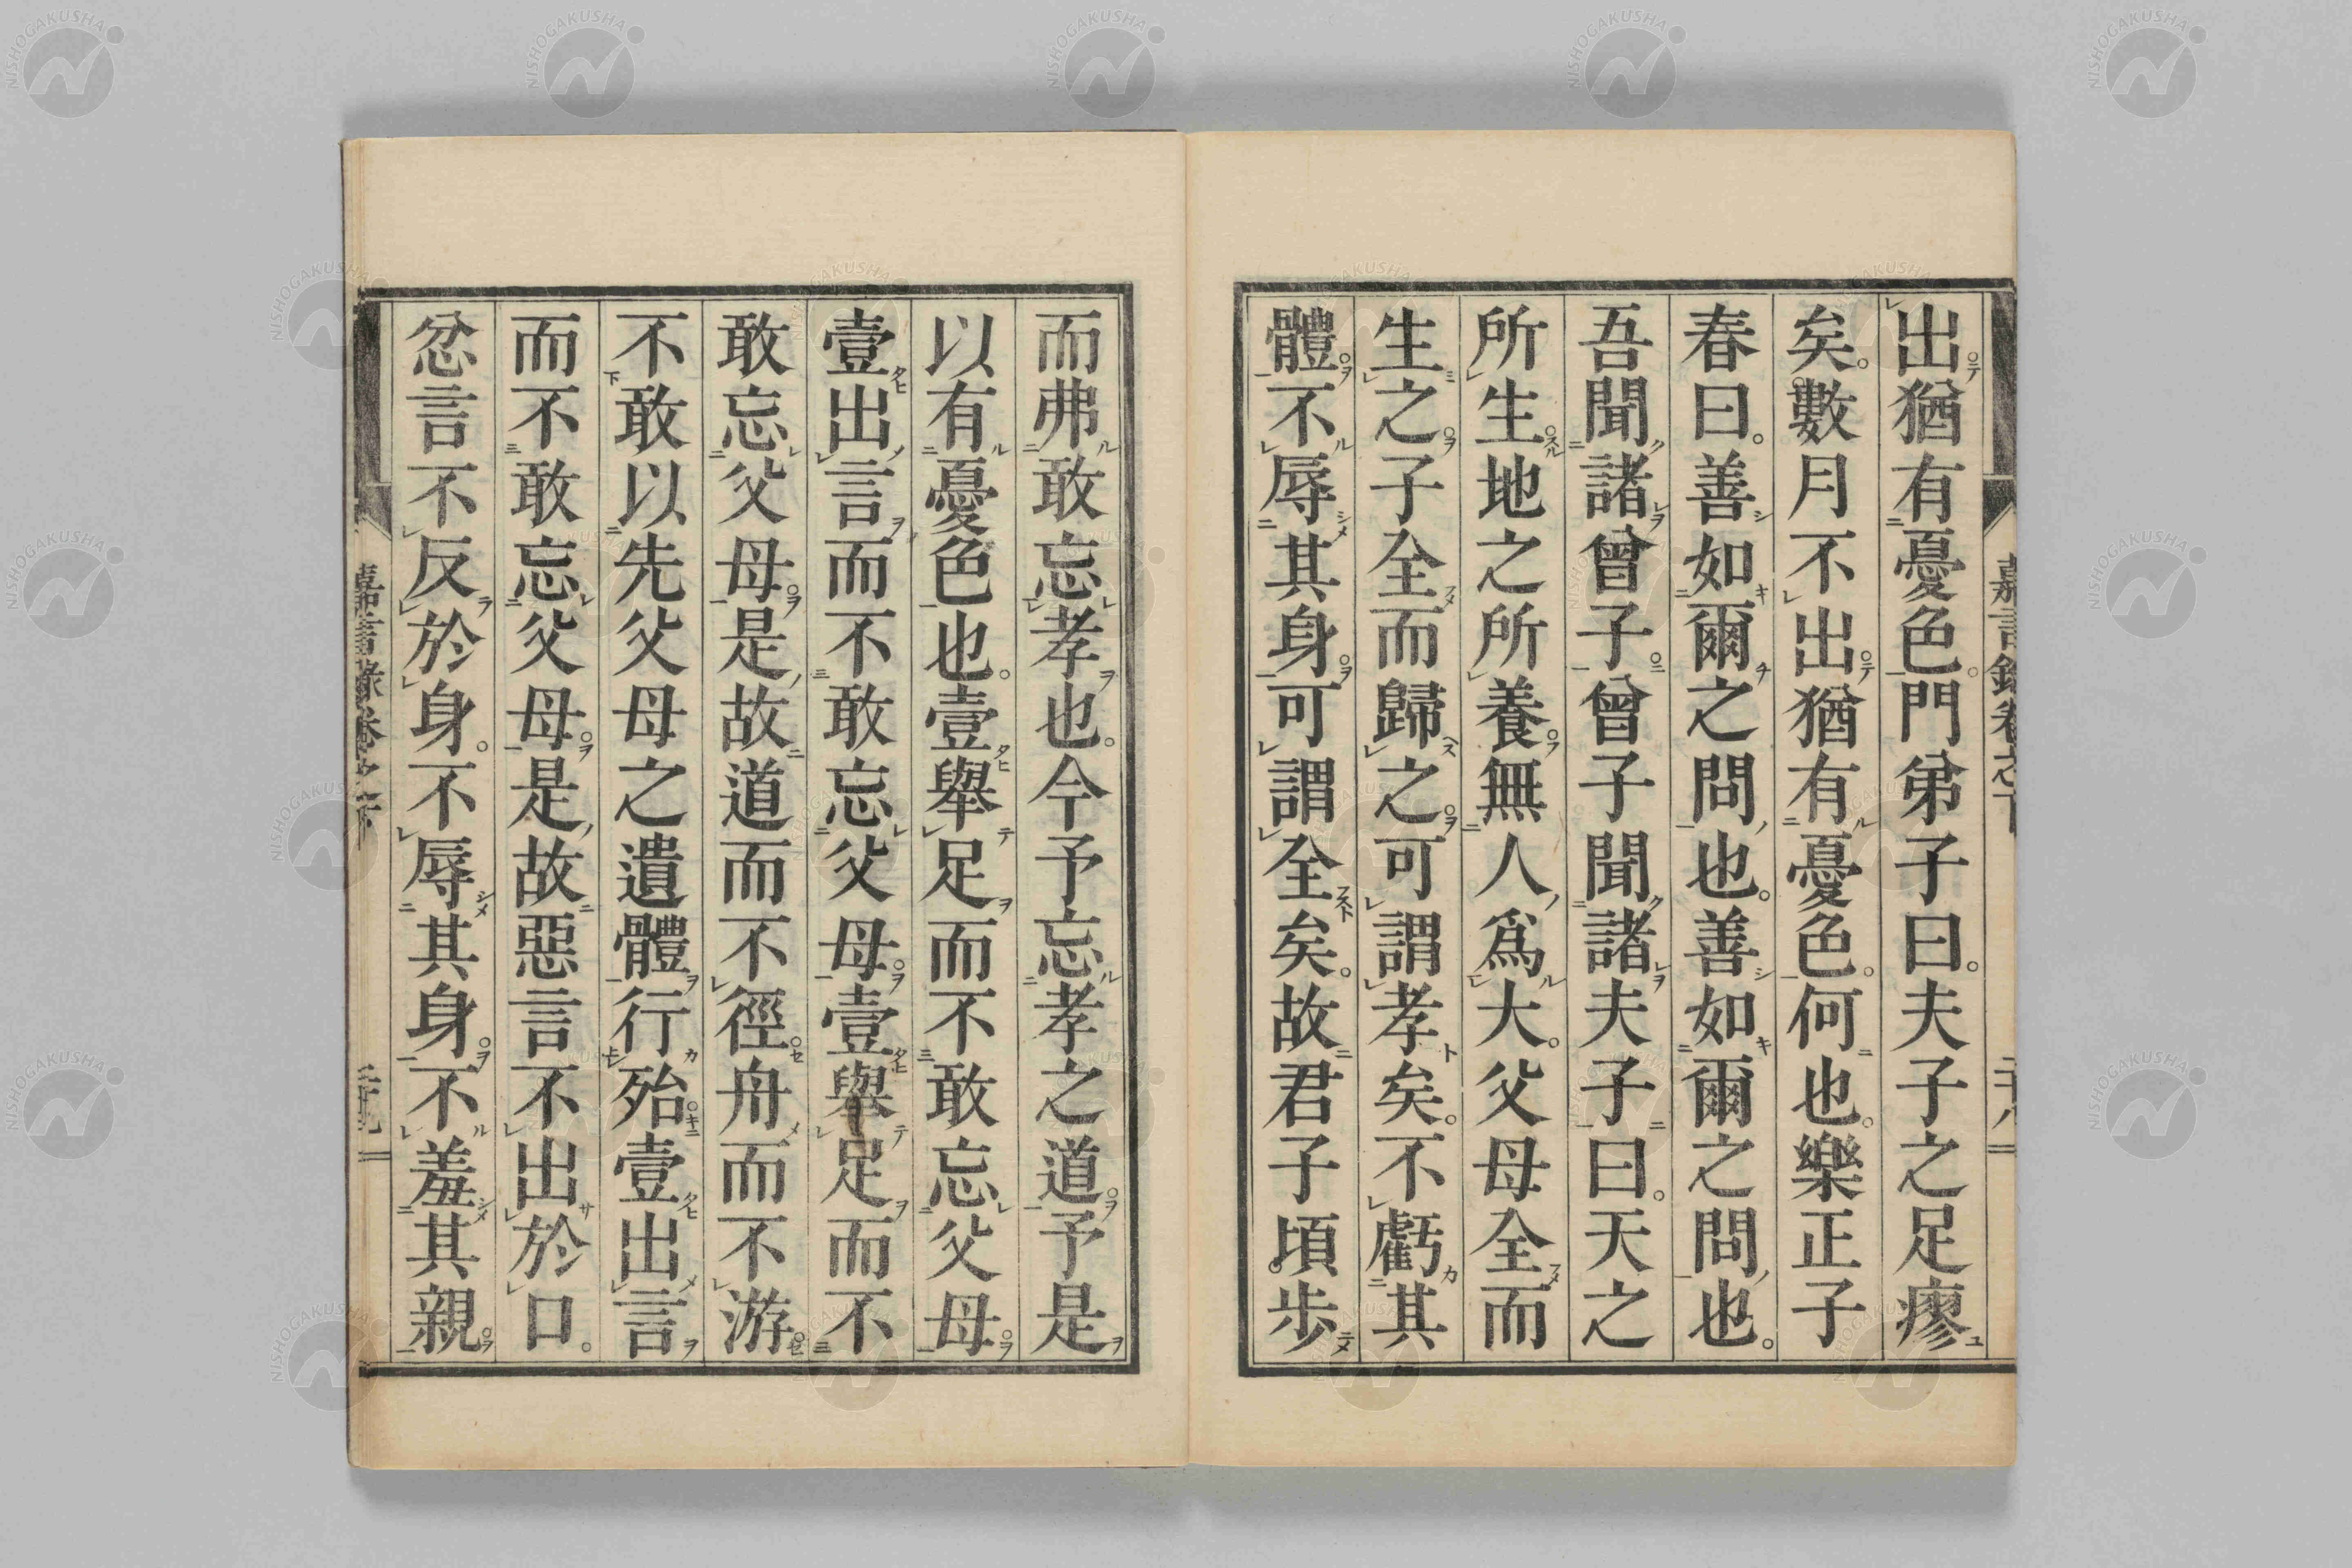 出猶有憂色門弟子曰夫子之足瘳
矣數月不出猶有憂色何也樂正子
春曰善如爾之問也善如爾之問也
吾聞諸曾子曾子聞諸夫子曰天之
所生地之所養無人爲大父母全而
生之子全而歸之可謂孝矣不虧其
體不辱其身可謂全矣故君子頃步
而弗敢忘孝也今予忘孝之道予是
以有憂色也壹舉足而不敢忘父母
壹出言而不敢忘父母壹舉足而不
敢忘父母是故道而不徑舟而不游
不敢以先父母之遺體行殆壹出言
而不敢忘父母是故惡言不出於口
忿言不反於身不辱其身不羞其親
嘉言錄卷之下
二十八
NISHOGAKUSHA